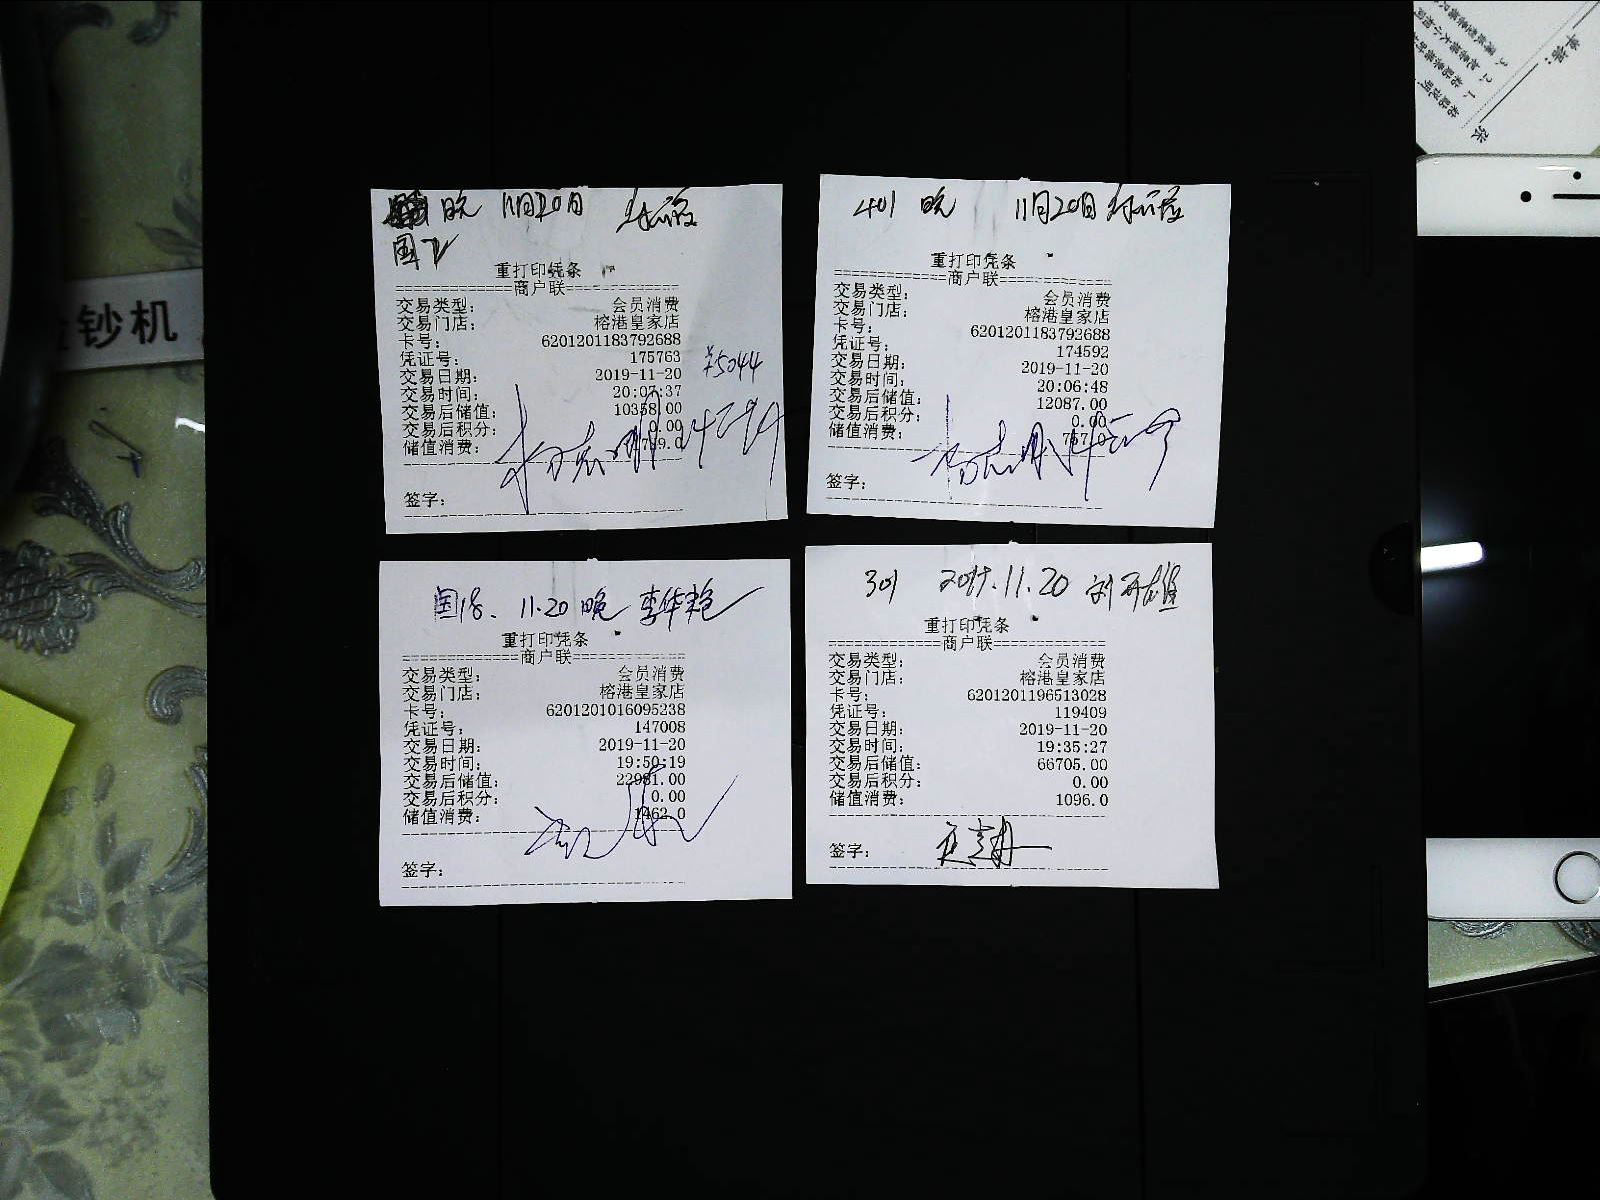 晚 11月20日
国
重打印凭条
=============商户联=============
交易类型： 会员消费
交易门店： 榕港皇家店
卡号： 6201201183792688
凭证号： 175763
交易日期： 2019-11-20
¥5044
交易时间： 20:07:37
交易后储值： 10358.00
交易后积分： 0.00
储值消费：
签字：
401 晚 11月20日
重打印凭条
=============商户联=============
交易类型： 会员消费
交易门店： 榕港皇家店
卡号： 6201201183792688
凭证号： 174592
交易日期： 2019-11-20
交易时间： 20:06:48
交易后储值： 12087.00
交易后积分： 0.00
储值消费：
签字：
国18、 11.20 晚 李华艳
重打印凭条
=============商户联=============
交易类型： 会员消费
交易门店： 榕港皇家店
卡号： 6201201016095238
凭证号： 147008
交易日期： 2019-11-20
交易时间： 19:50:19
交易后储值： 22981.00
交易后积分： 0.00
储值消费： 1462.0
签字：
301 2019.11.20
重打印凭条
=============商户联=============
交易类型： 会员消费
交易门店： 榕港皇家店
卡号： 6201201196513028
凭证号： 119409
交易日期： 2019-11-20
交易时间： 19:35:27
交易后储值： 66705.00
交易后积分： 0.00
储值消费： 1096.0
签字：
钞机
单据：
张
粘贴说明